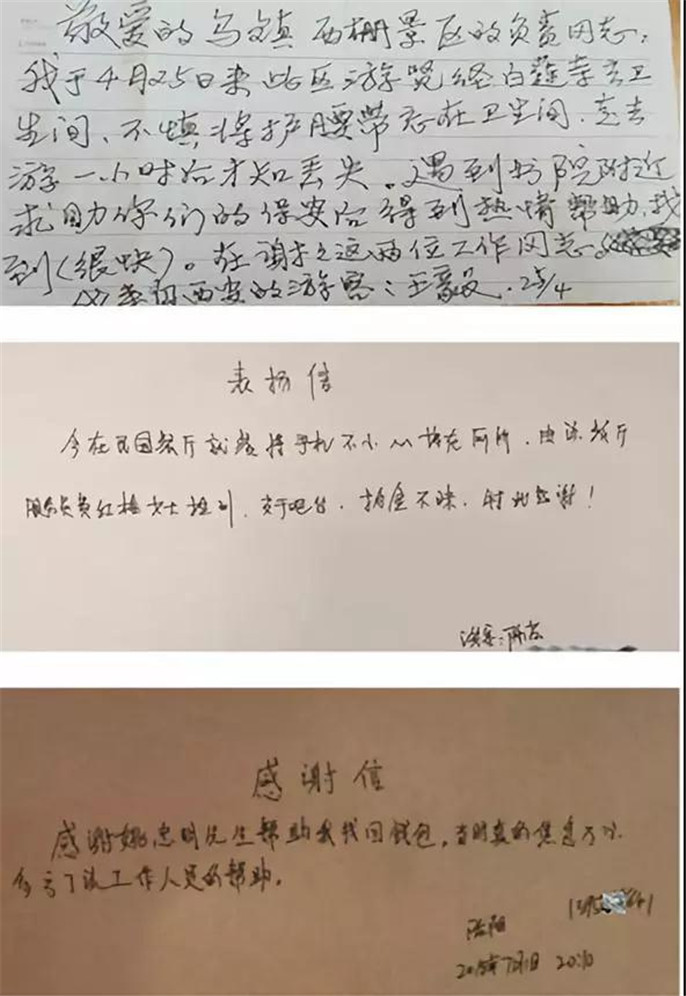 敬爱的乌镇西栅景区的负责同志:
我于4月25日来此区游览经白莲寺去卫
生间、不慎将护腰带忘在卫生间.走去
游了一小时后才知丢失.遇到书院附近
求助你们的保安后得到热情帮助.找
到(很快)。在谢谢这两位工作同志。
西安的游客:王毅 25/4
表扬信
今在民国餐厅就餐将手机不小心掉在厕所.由该餐厅
服务员黄红梅女士捡到.交于吧台.拾金不昧.特此感谢!
游客:
感谢信
感谢姚忠明先生帮助我找回钱包,当时真的焦急万分
多亏了该工作人员的帮助。
2018年7月1日 20:10